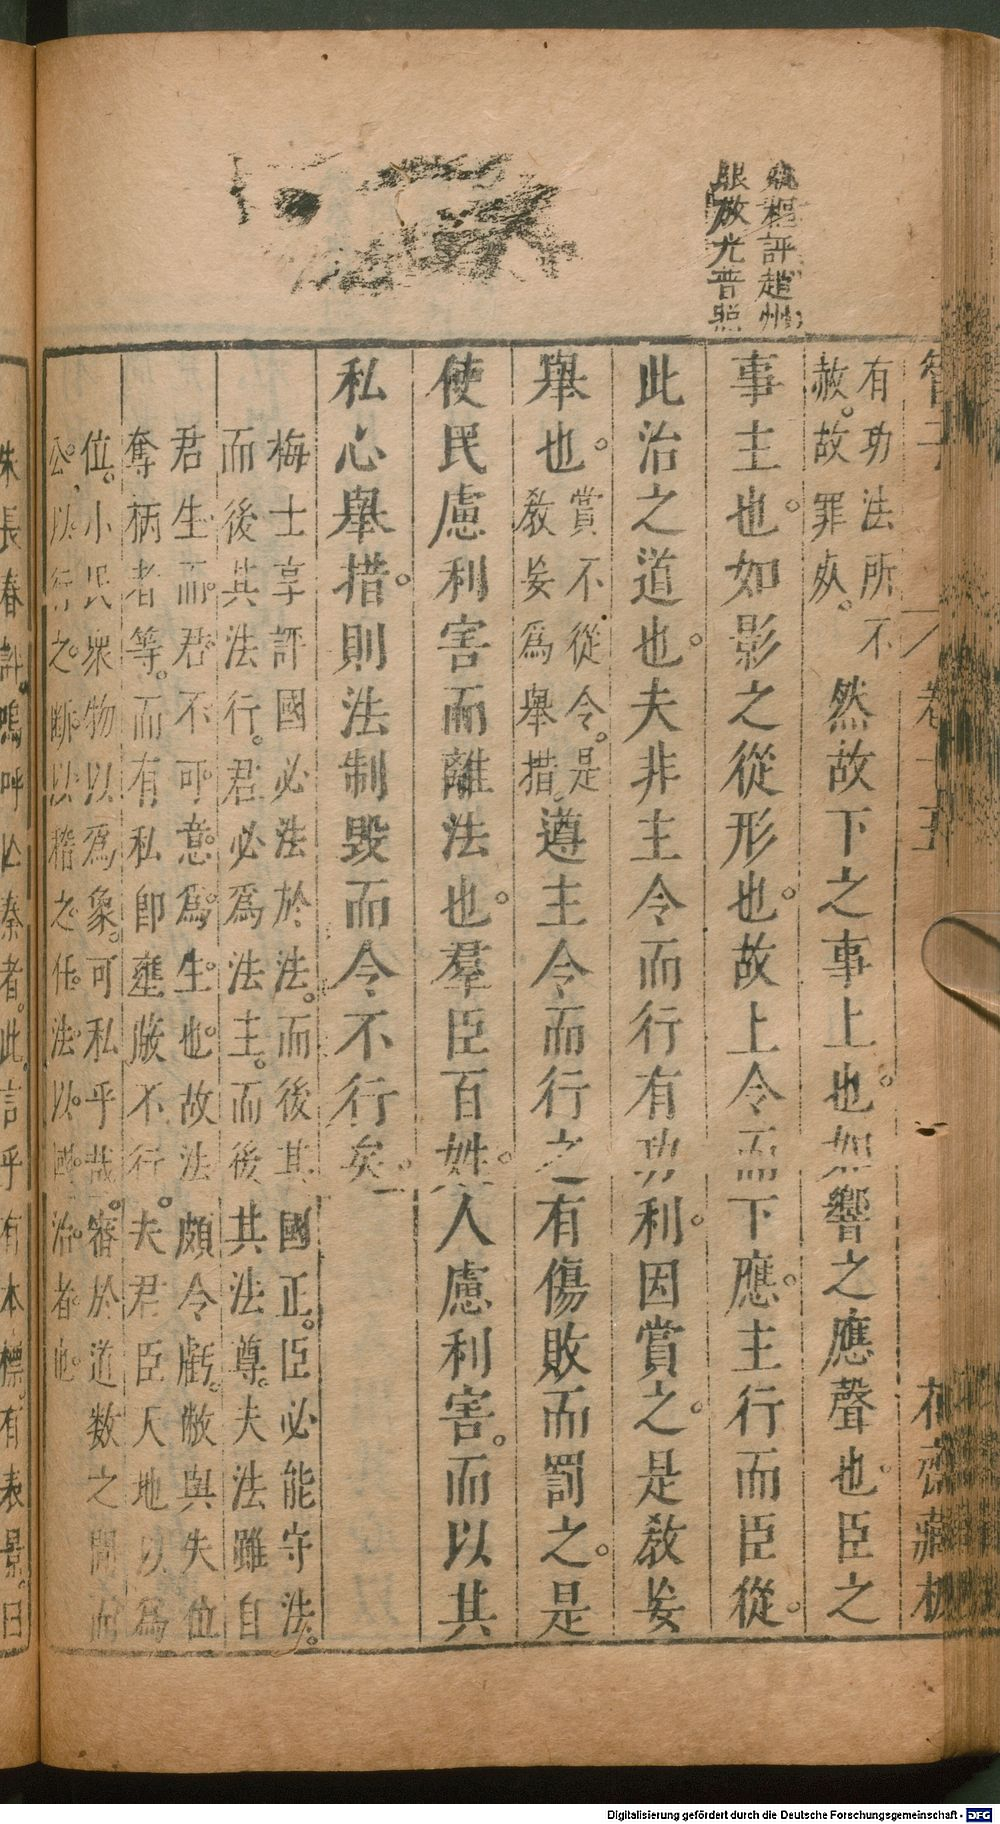 管子
卷十五
花齋藏板
評趙州
眼放光普照
有功法所不
赦故罪㚈。
然故下之事上也。如響之應聲也。臣之
事主也。如影之從形也。故上令而下應。主行而臣從。
此治之道也。夫非主令而行有功利。因賞之。是教妄
舉也。
賞不從令。是
教妄爲舉措。
遵主令而行之有傷敗而罰之。是
使民慮利害而離法也。羣臣百姓。人慮利害。而以其
私心舉措。則法制毀而令不行矣。
梅士享評國必法於法。而後其國正。臣必能守法。
而後其法行。君必爲法主。而後其法尊。夫法雖自
君生而。君不可意爲生也。故法頗令虧。敝與失位
奪柄者等。而有私卽壅蔽不行。夫君臣天地以爲
位。小民衆物以爲象。可私乎哉。審於道数之間而
公。以行之。斷以稽之。任法以國治者也。
朱長春評。嗚呼亾秦者。此言乎有本標。有表景。曰
Digitalisierung gefördert durch die Deutsche Forschungsgemeinschaft - DFG